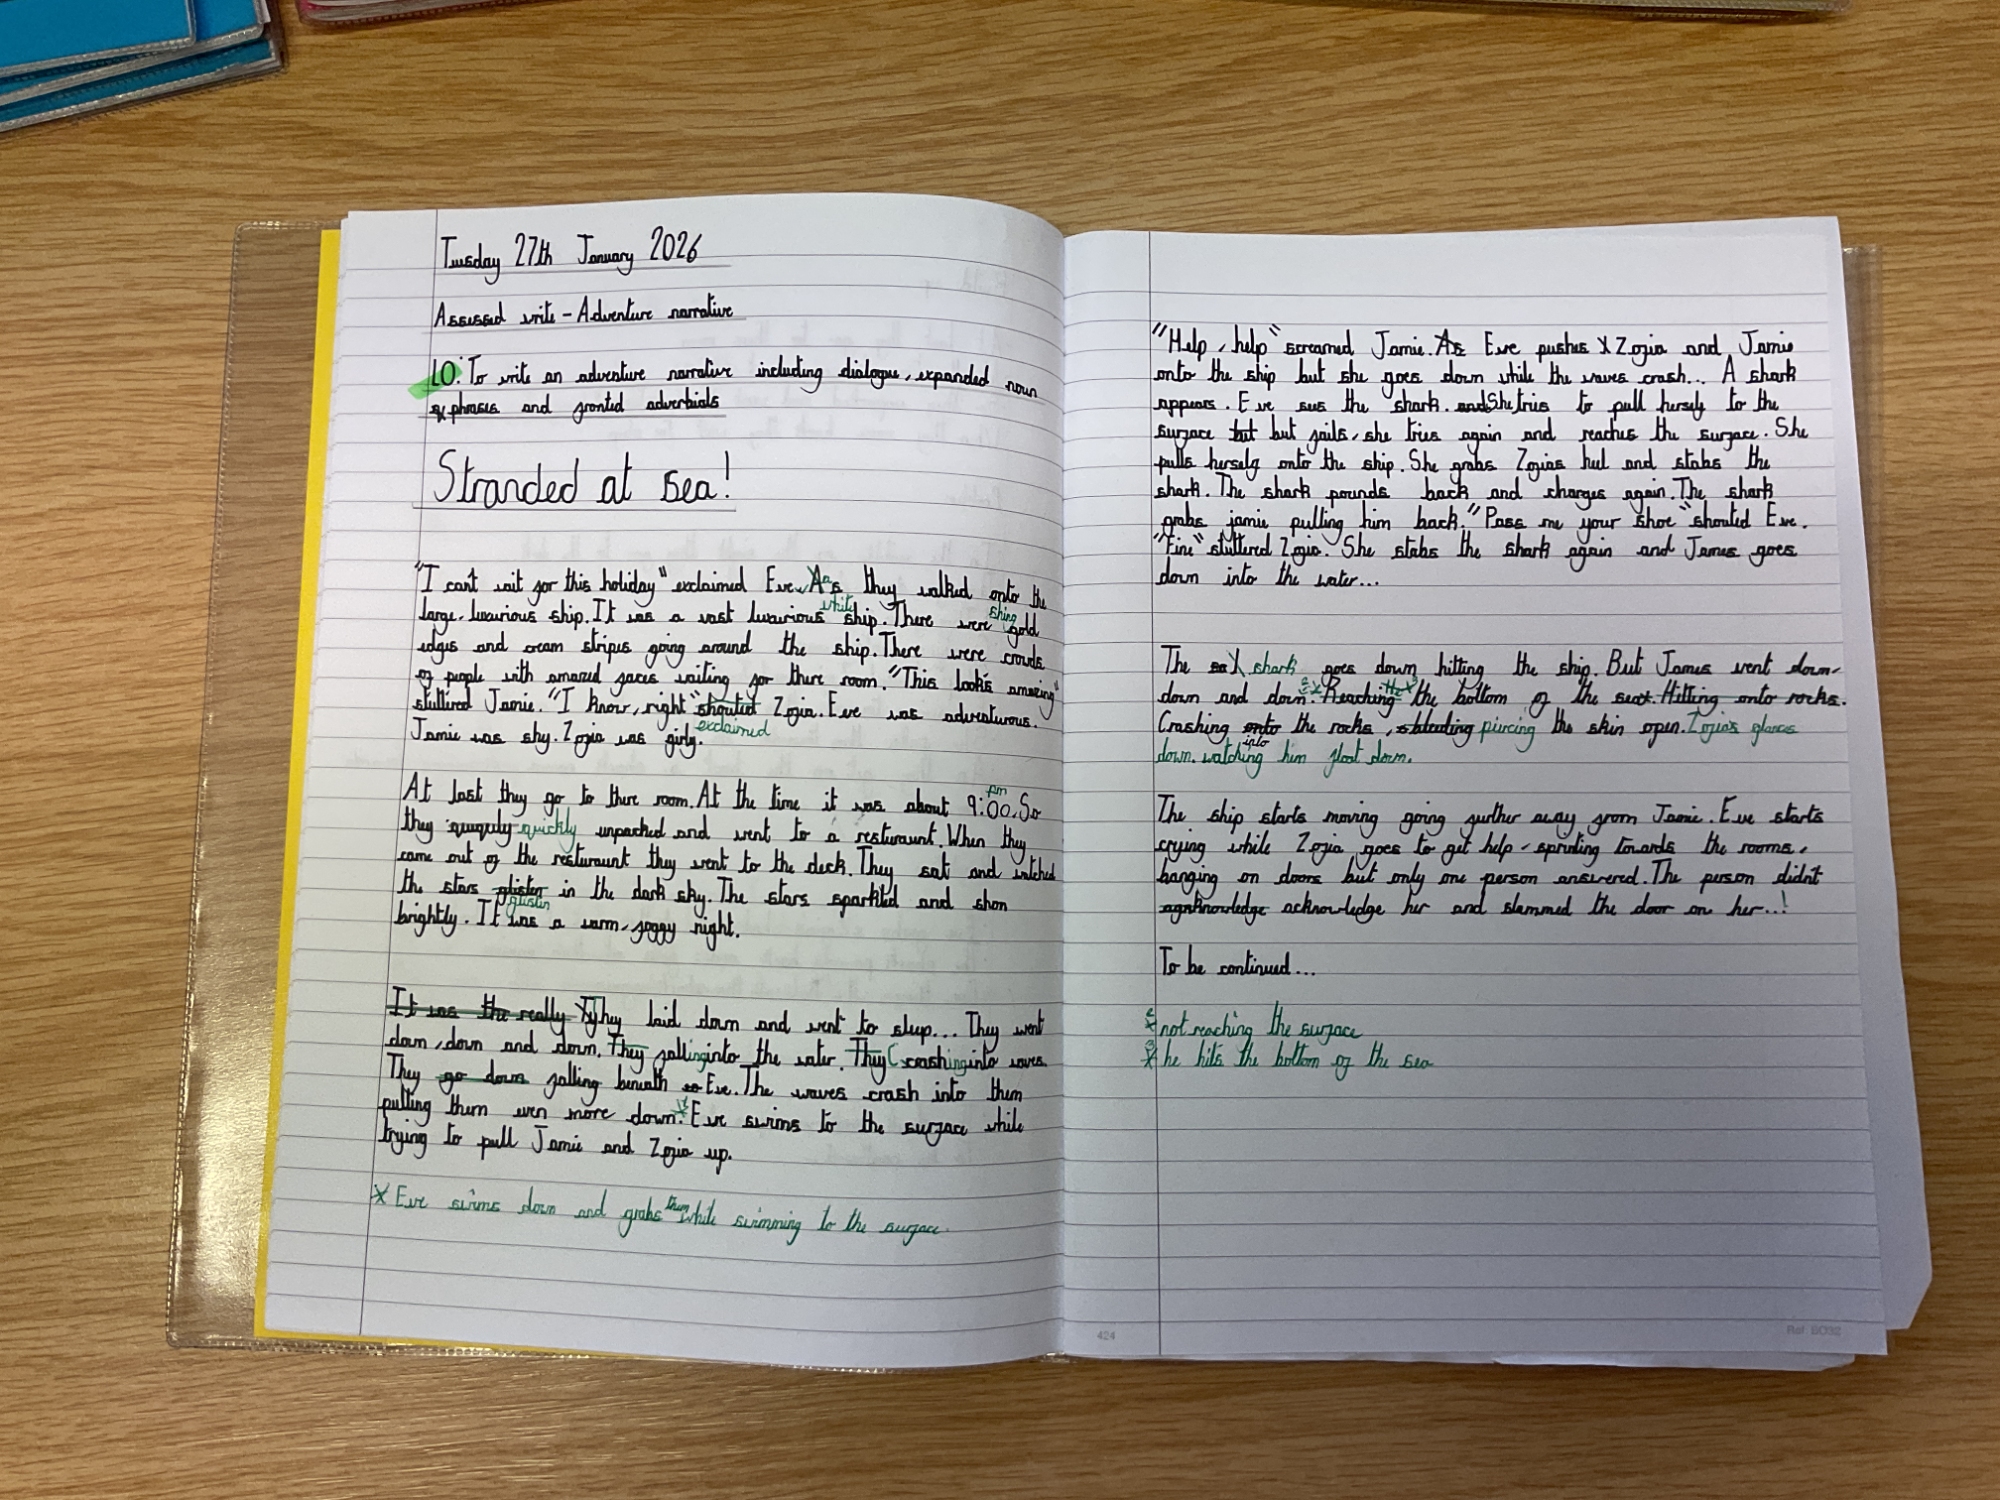 Tuesday 27th January 2026
Assessed write - Adventure narrative
LO: To write an adventure narrative including dialogue, expanded noun
phrases and fronted adverbials
Stranded at sea!
"I cant wait for this holiday" exclaimed Eve. as they walked onto the
large, luxurious ship. It was a vast luxurious white ship. There were shing gold
edges and cream stripes going around the ship. There were crowds
of people with amazed faces waiting for there room. "This looks amazing"
stuttered Jamie. "I know, right" shouted Zofia. Eve was adventurous.
exclaimed
Jamie was shy. Zofia was girly.
At last they go to there room. At the time it was about 9:00pm. So
they quickly unpacked and went to a resturaunt. When they
came out of the resturaunt they went to the deck. They sat and watched
the stars glisten in the dark sky. The stars sparkled and shon
glistin
brightly. It was a warm, foggy night.
It was the really They laid down and went to sleep... They went
down, down and down. They falling into the water. They Crashing into waves.
They go down falling beneath Eve. The waves crash into them
pulling them even more down.* Eve swims to the surface while
trying to pull Jamie and Zofia up.
* Eve swims down and grabs them while swimming to the surface.
"Help, help" screamed Jamie. As Eve pushes Zofia and Jamie
onto the ship but she goes down while the waves crash... A shark
appears. Eve sees the shark. and She tries to pull herself to the
surface but but fails, she tries again and reaches the surface. She
pulls herself onto the ship. She grabs Zofias heel and stabs the
shark. The shark pounds back and charges again. The shark
grabs jamie pulling him back. "Pass me your shoe" shouted Eve.
"Fine" stuttered Zofia. She stabs the shark again and James goes
down into the water...
The shark goes down hitting the ship. But James went down,
down and down. Reaching the bottom of the sea. Hitting onto rocks.
Crashing onto the rocks, bleeding piercing the skin open. Zofia's glances
into
down. watching him float down.
The ship starts moving going further away from Jamie. Eve starts
crying while Zofia goes to get help, sprinting towards the rooms,
banging on doors but only one person answered. The person didn't
acknowledge her and slammed the door on her...!
To be continued...
not reaching the surface
he hits the bottom of the sea
424
Ref: BO32